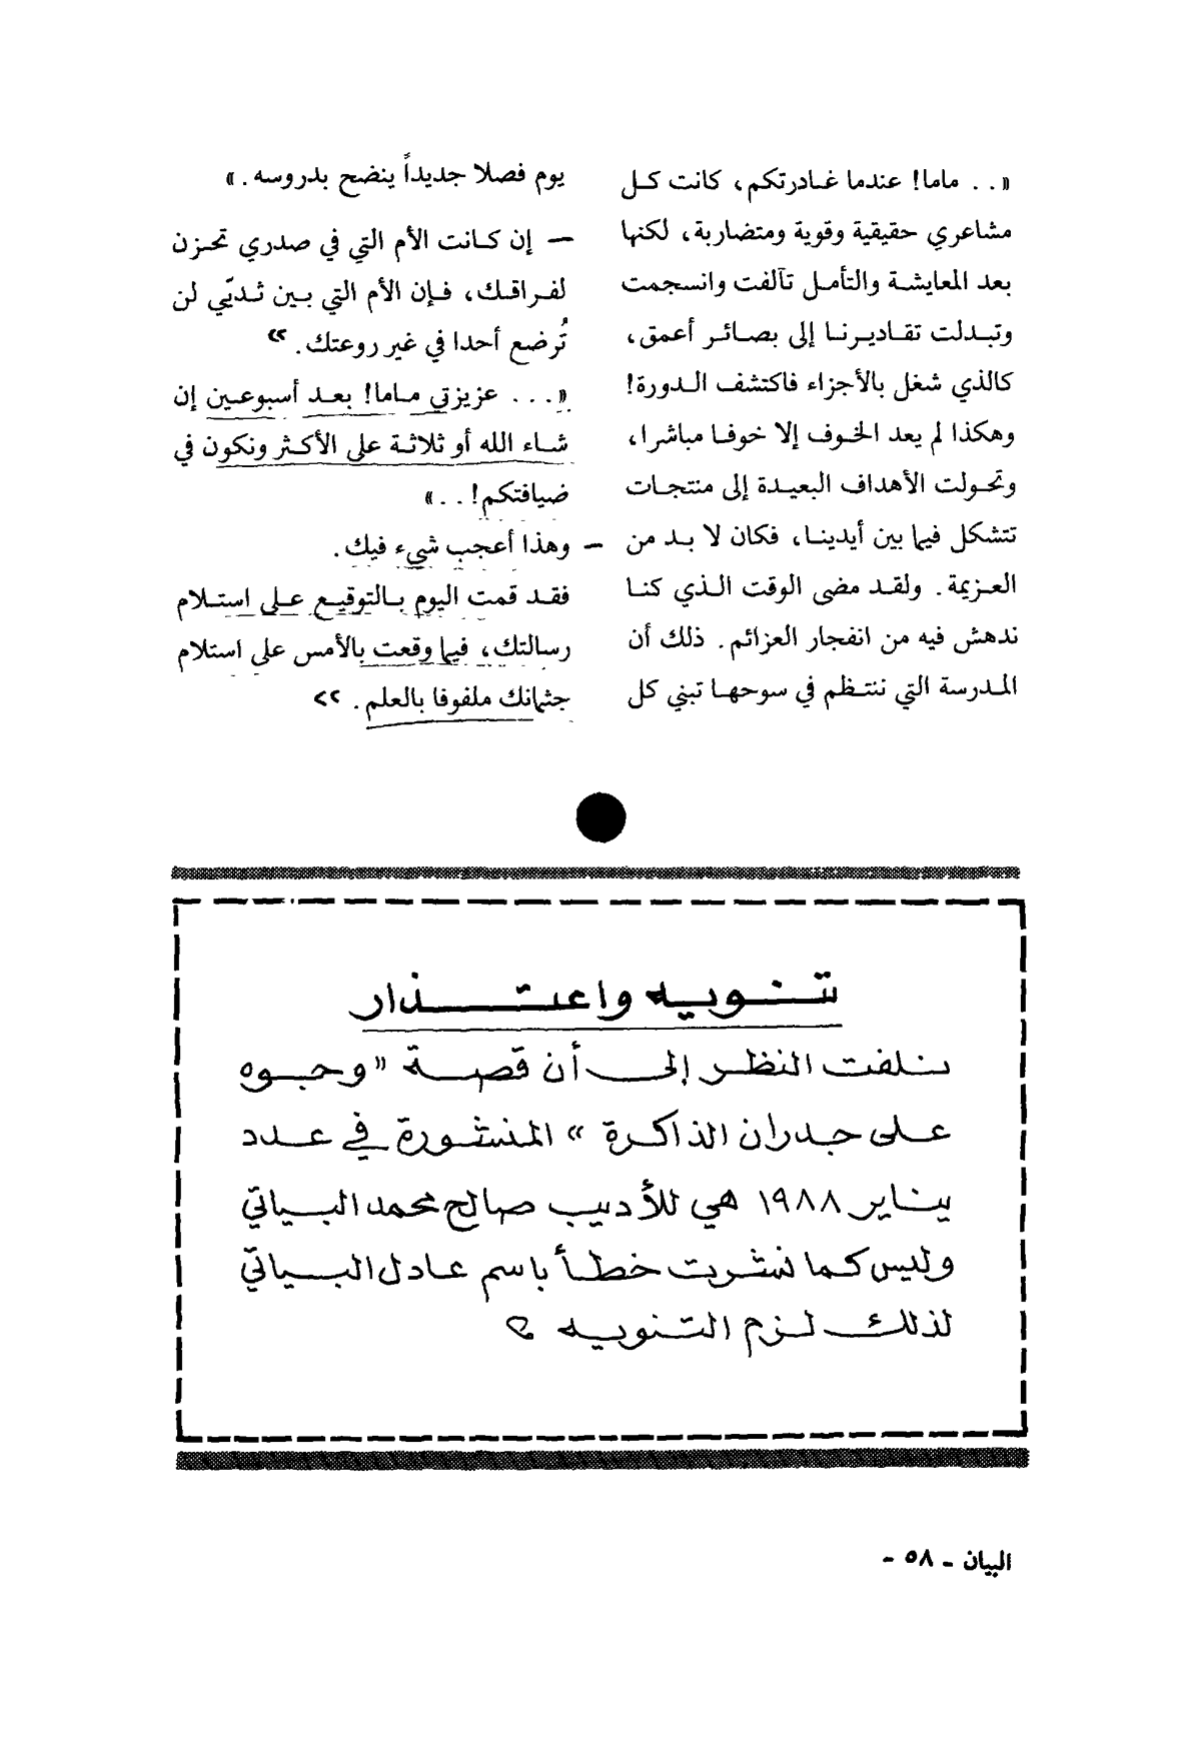 «. . ماما! عندما غادرتكم، كانت كل
مشاعري حقيقية وقوية ومتضاربة، لكنها
بعد المعايشة والتأمل تآلفت وانسجمت
وتبدلت تقاديرنا إلى بصائر أعمق،
كالذي شغل بالأجزاء فاكتشف الدورة!
وهكذا لم يعد الخوف إلا خوفا مباشرا،
وتحولت الأهداف البعيدة إلى منتجات
تتشكل فيما بين أيدينا، فكان لا بد من
العزيمة. ولقد مضى الوقت الذي كنا
ندهش فيه من انفجار العزائم. ذلك أن
المدرسة التي ننتظم في سوحها تبني كل
يوم فصلا جديداً ينضح بدروسه.»
— إن كانت الأم التي في صدري تحزن
لفراقك، فإن الأم التي بين ثديّي لن
تُرضع أحدا في غير روعتك. >>
«. . . عزيزتي ماما! بعد أسبوعين إن
شاء الله أو ثلاثة على الأكثر ونكون في
ضيافتكم! . .»
— وهذا أعجب شيء فيك.
فقد قمت اليوم بالتوقيع على استلام
رسالتك، فيما وقعت بالأمس على استلام
جثمانك ملفوفا بالعلم. >>
تنويه واعتذار
نلفت النظر إلى أن قصة «وجوه
على جدران الذاكرة» المنشورة في عدد
يناير ١٩٨٨ هي للأديب صالح محمد البياتي
وليس كما نشرت خطأ باسم عادل البياتي
لذلك لزم التنويه
البيان - ٥٨ -